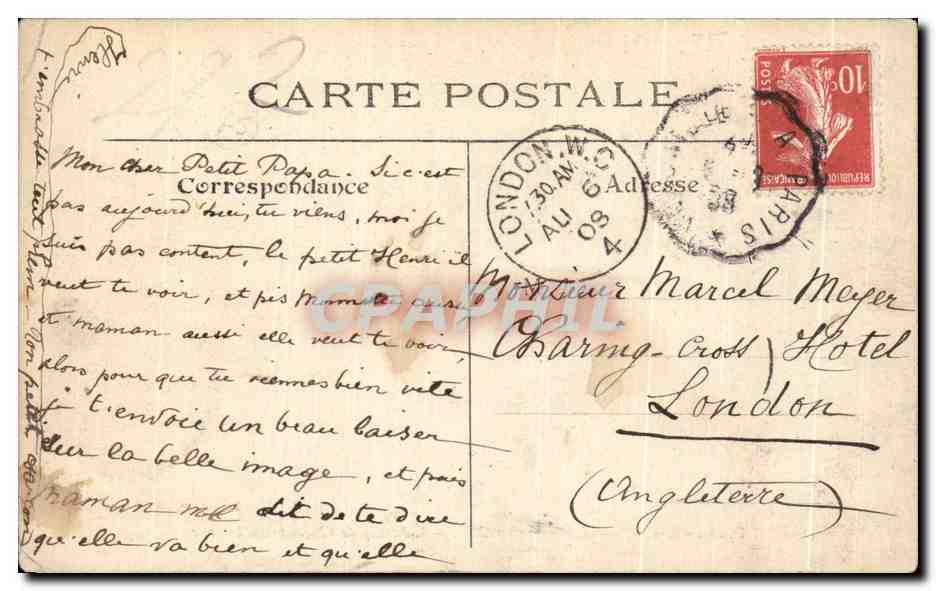 CARTE POSTALE
Correspondance
Adresse
Mon cher Petit Papa. Si c'est
pas aujourd'hui, tu viens, moi je
suis pas content, le petit Henri il
veut te voir, et pis aussi
et maman aussi elle veut te voir,
alors pour que tu viennes bien vite
je t'envoie un beau baiser
sur la belle image, et puis
maman me dit de te dire
qu'elle va bien et qu'elle
t'embrasse tout plein Ton petit garçon
Henri
Monsieur Marcel Meyer
Charing-Cross Hotel
London
(Angleterre)
LONDON. W.C.
7.30.AM
AU 6
08
4
A PARIS
08
10c
POSTES
REPUBLIQUE FRANÇAISE
CPAPHIL